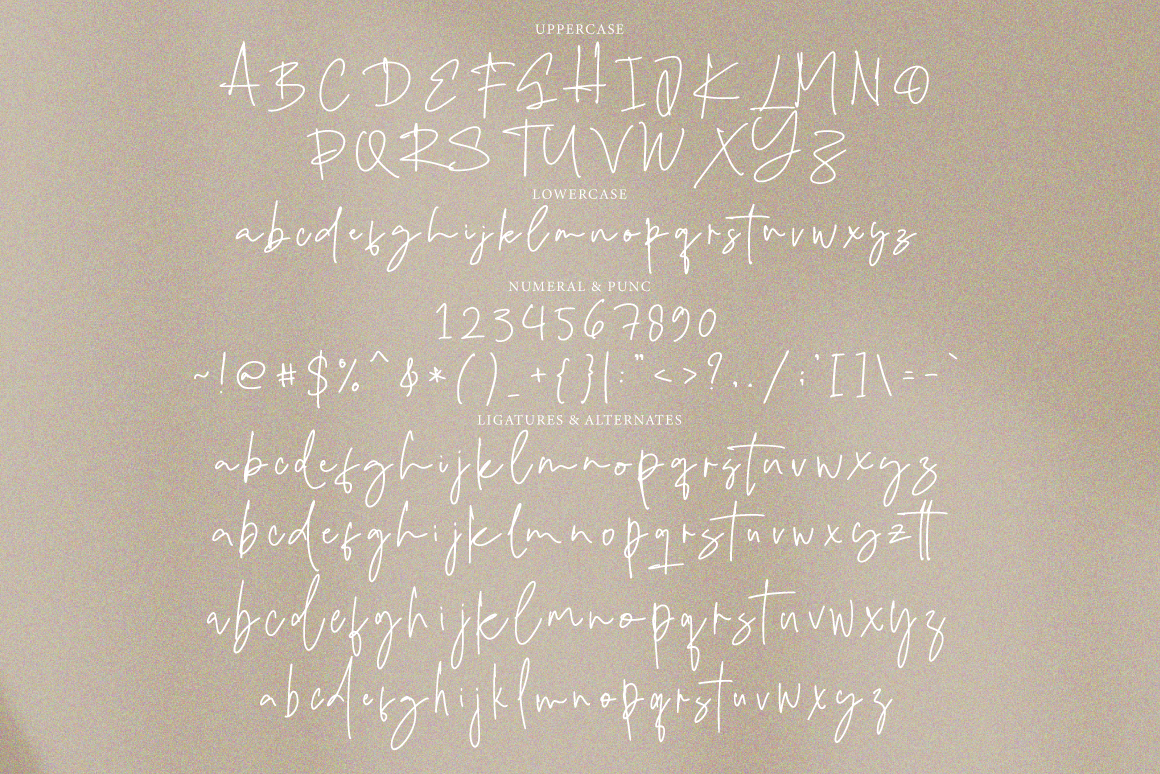 UPPERCASE
A B C D E F G H I J K L M N O
P Q R S T U V W X Y Z
LOWERCASE
abcdefghijklmnopqrstuvwxyz
NUMERAL & PUNC
1234567890
~ ! @ # $ % ^ & * ( ) _ + { } | : " < > ? , . / ; ' [ ] \ = - `
LIGATURES & ALTERNATES
abcdefghijklmnopqrstuvwxyz
abcdefghijklmnopqrstuvwxyztt
abcdefghijklmnopqrstuvwxyz
abcdefghijklmnopqrstuvwxyz